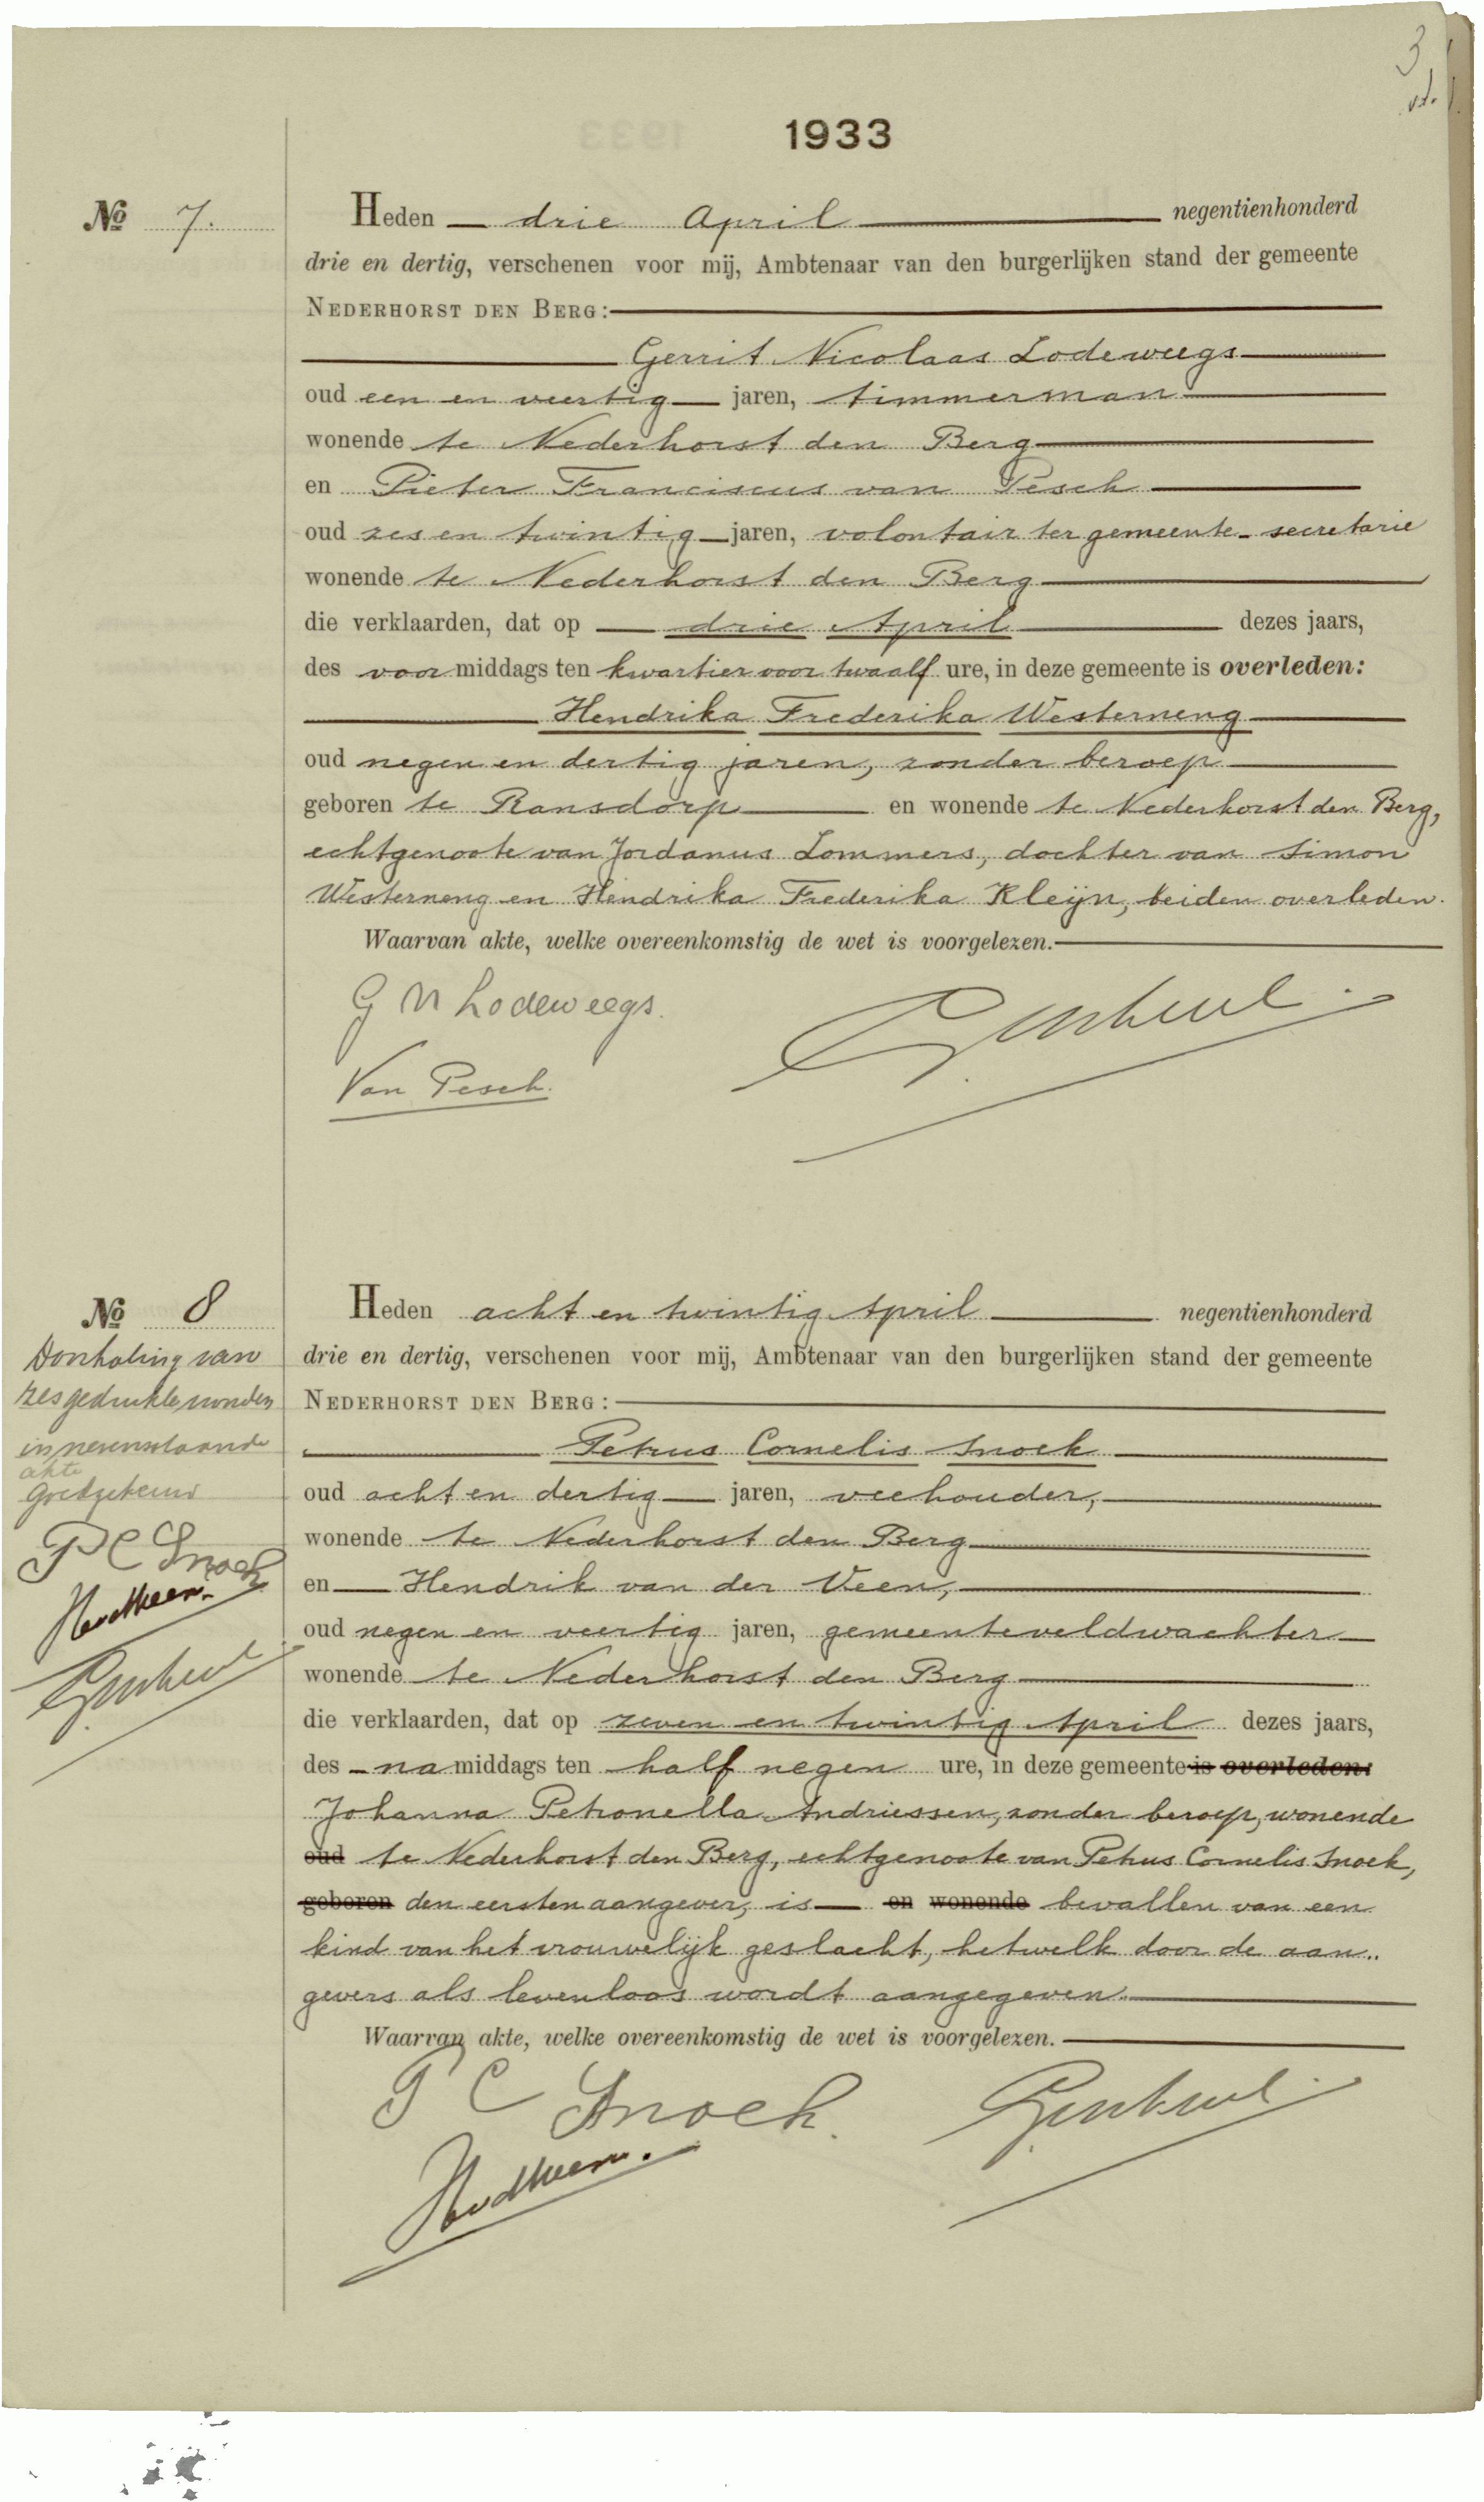 3
1933
No 7.
Heden — drie April — negentienhonderd
drie en dertig, verschenen voor mij, Ambtenaar van den burgerlijken stand der gemeente
NEDERHORST DEN BERG:
Gerrit Nicolaas Lodeweegs
oud een en veertig jaren, timmerman
wonende te Nederhorst den Berg
en Pieter Franciscus van Pesch
oud zes en twintig jaren, volontair ter gemeente-secretarie
wonende te Nederhorst den Berg
die verklaarden, dat op drie April dezes jaars,
des voormiddags ten kwartier voor twaalf ure, in deze gemeente is overleden:
Hendrika Frederika Westerneng
oud negen en dertig jaren, zonder beroep
geboren te Ransdorp en wonende te Nederhorst den Berg,
echtgenoote van Jordanus Lommers, dochter van Simon
Westerneng en Hendrika Frederika Kleijn, beiden overleden.
Waarvan akte, welke overeenkomstig de wet is voorgelezen.
G N Lodeweegs.
Van Pesch.
No 8
Doorhaling van
zes gedrukte woorden
in nevenstaande
akte
goedgekeurd
P C Snoek
Heden acht en twintig April negentienhonderd
drie en dertig, verschenen voor mij, Ambtenaar van den burgerlijken stand der gemeente
NEDERHORST DEN BERG:
Petrus Cornelis Snoek
oud acht en dertig jaren, veehouder,
wonende te Nederhorst den Berg
en Hendrik van der Veen,
oud negen en veertig jaren, gemeenteveldwachter
wonende te Nederhorst den Berg
die verklaarden, dat op zeven en twintig April dezes jaars,
des — namiddags ten half negen ure, in deze gemeente is overleden:
Johanna Petronella Andriessen, zonder beroep, wonende
oud te Nederhorst den Berg, echtgenoote van Petrus Cornelis Snoek,
geboren den eersten aangever, is — en wonende bevallen van een
kind van het vrouwelijk geslacht, hetwelk door de aan..
gevers als levenloos wordt aangegeven.
Waarvan akte, welke overeenkomstig de wet is voorgelezen.
P C Snoek.
HvdVeen.